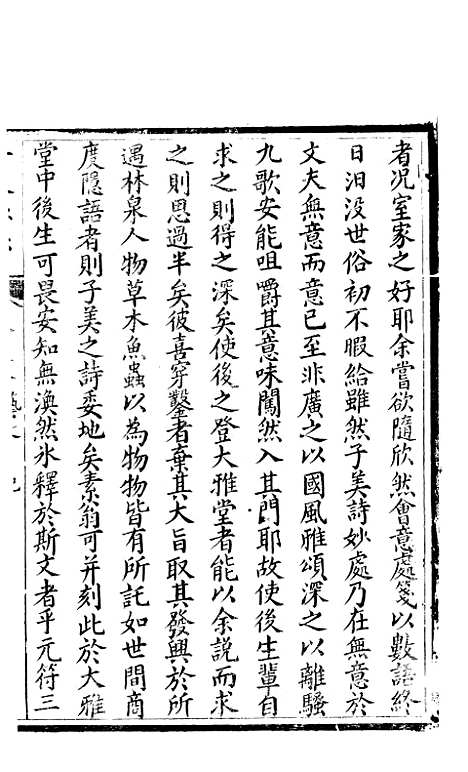 者况室家之好耶余嘗欲隨欣然會意處箋以數語終
日汨没世俗初不暇給雖然子美詩妙處乃在無意於
文夫無意而意已至非廣之以國風雅頌深之以離騷
九歌安能咀嚼其意味闖然入其門耶故使後生輩自
求之則得之深矣使後之登大雅堂者能以余說而求
之則思過半矣彼喜穿鑿者棄其大旨取其發興於所
遇林泉人物草木魚蟲以為物物皆有所託如世間商
度隱語者則子美之詩委地矣素翁可并刻此於大雅
堂中後生可畏安知無渙然氷釋於斯文者乎元符三